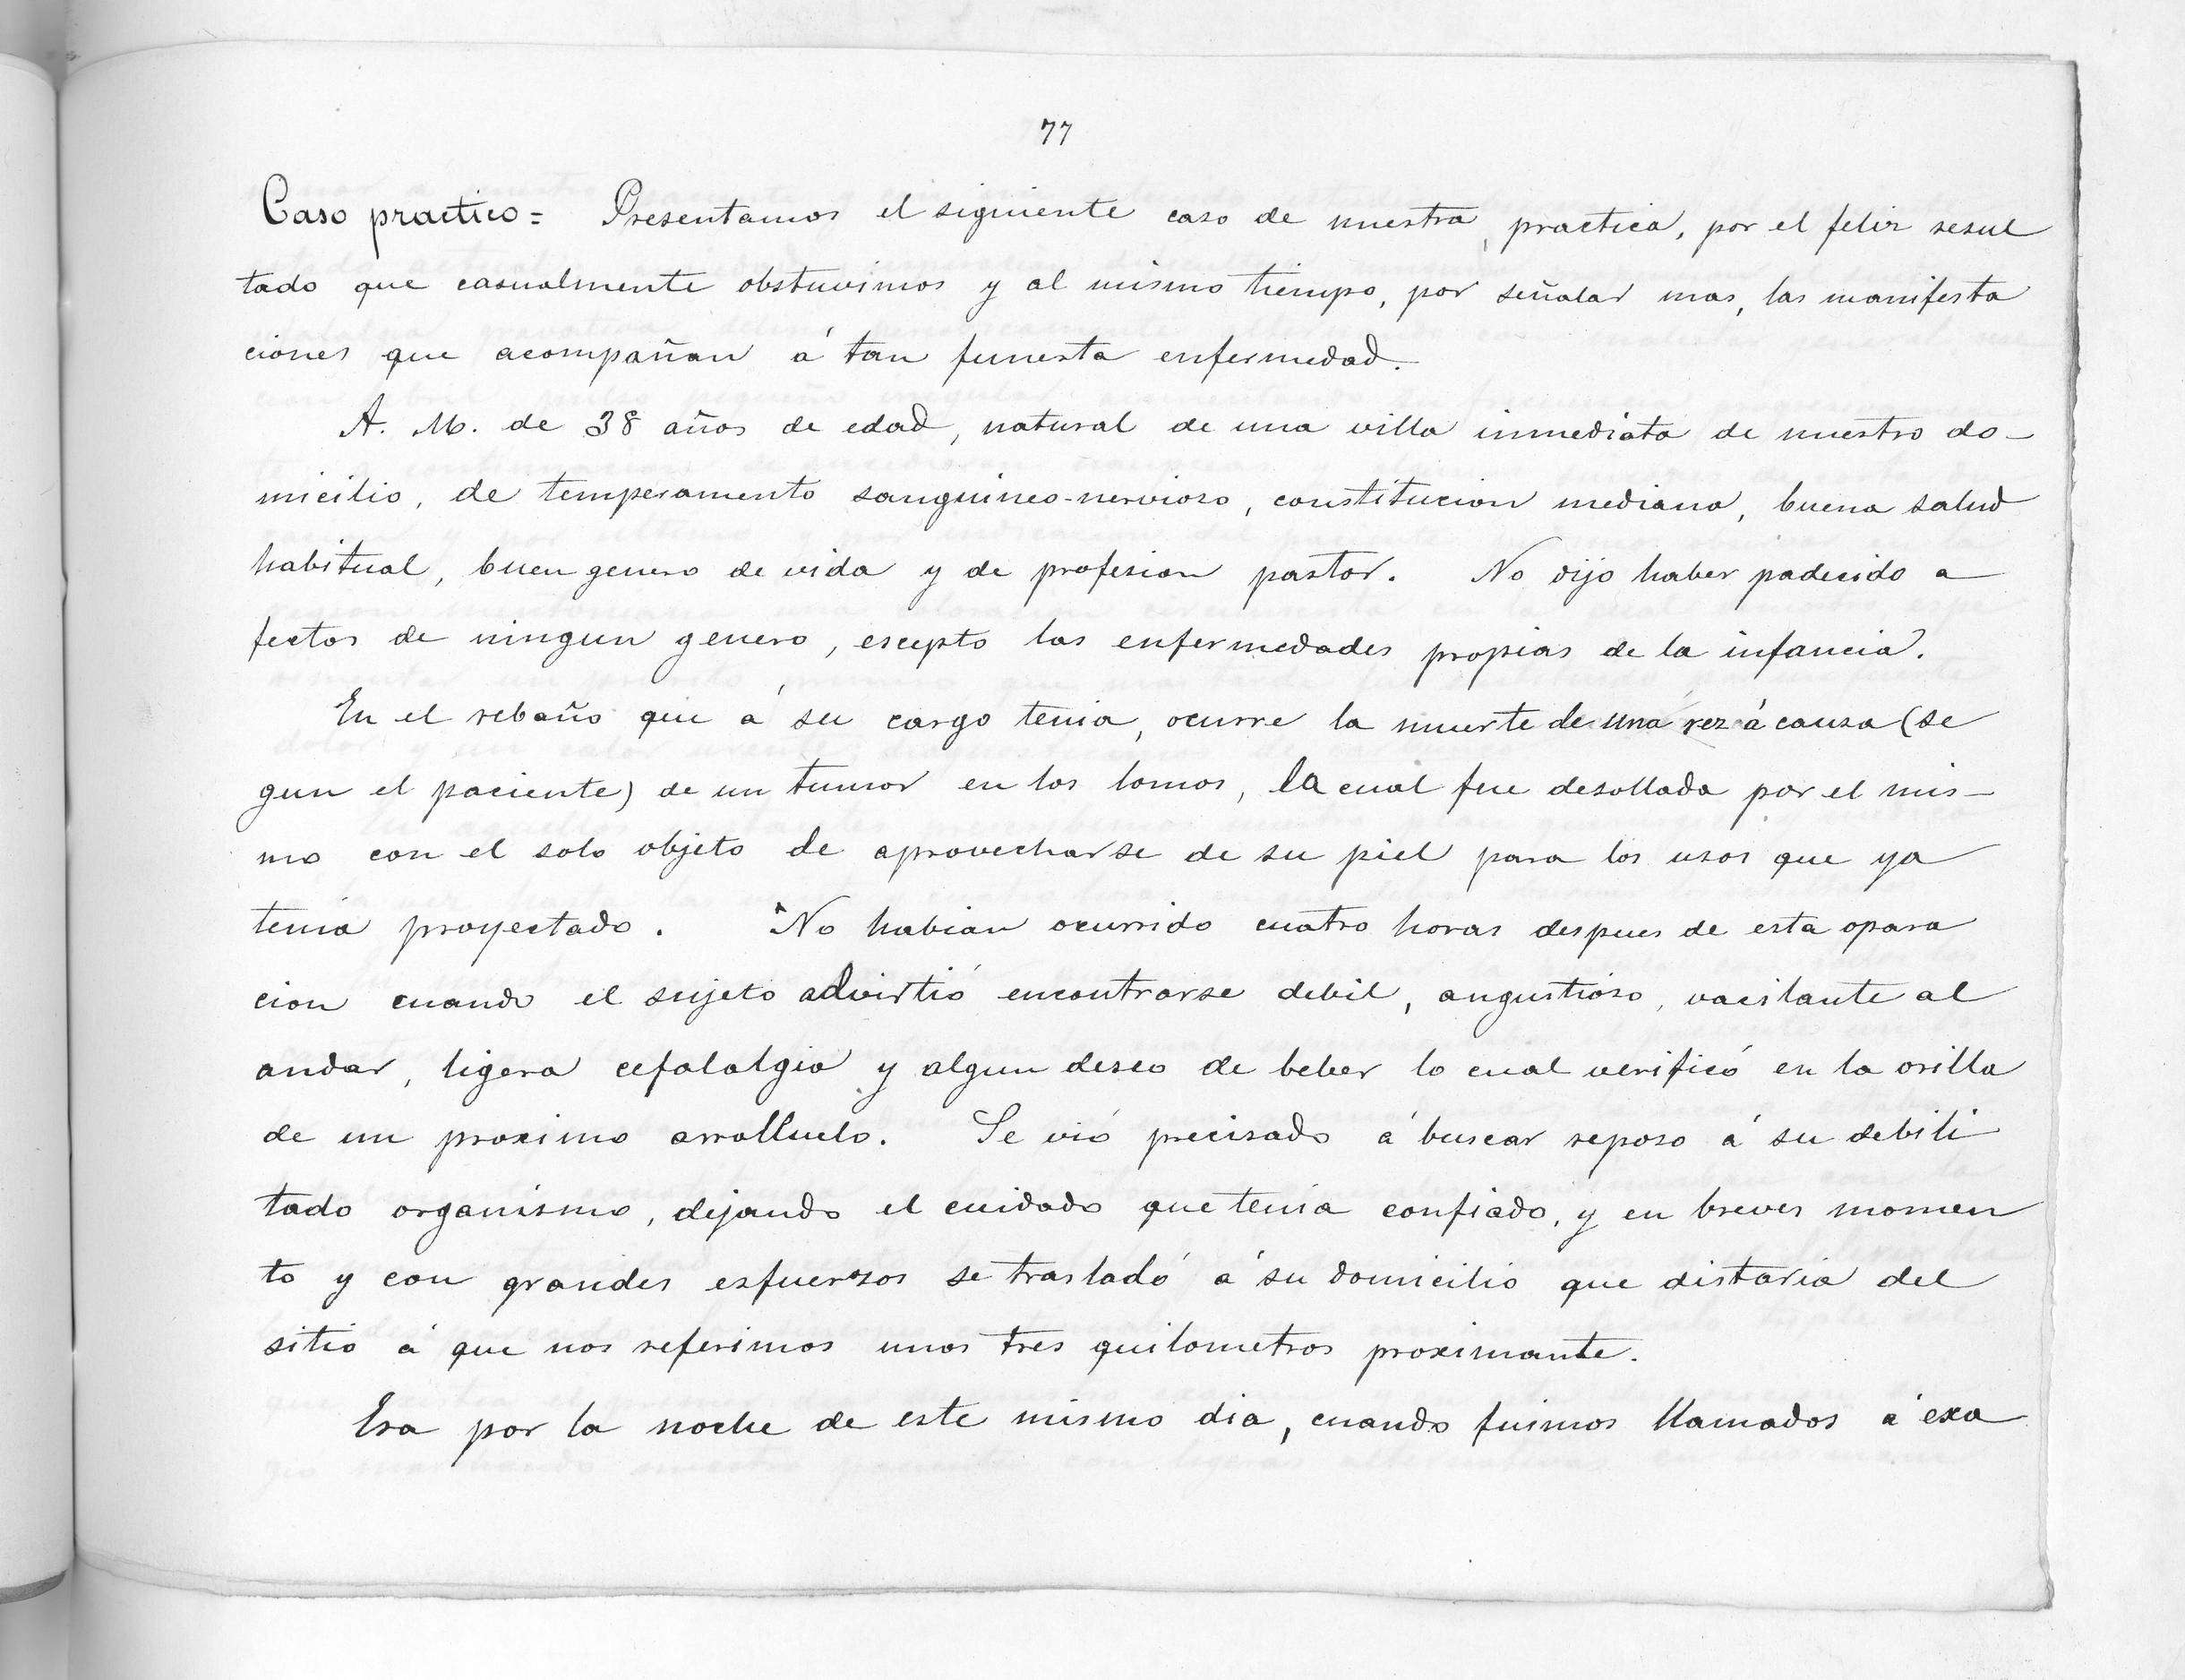 77
Caso practico = Presentamos el siguiente caso de nuestra, practica, por el feliz resul
tado que casualmente obstuvimos y al mismo tiempo, por señalar mas, las manifesta
ciones que acompañan á tan funesta enfermedad.
A. M. de 38 años de edad, natural de una villa inmediata de nuestro do-
micilio, de temperamento sanguineo-nervioso, constitucion mediana, buena salud
habitual, buen genero de vida y de profesion pastor. No dijo haber padecido a
fectos de ningun genero, escepto las enfermedades propias de la infancia.
En el rebaño que á su cargo tenia, ocurre la muerte de una rez á causa (se
gun el paciente) de un tumor en los lomos, la cual fue desollada por el mis-
mo con el solo objeto de aprovecharse de su piel para los usos que ya
tenia proyectado. No habian ocurrido cuatro horas despues de esta opara
cion cuando el sujeto advirtió encontrarse debil, angustioso, vacilante al
andar, ligera cefalalgia y algun deseo de beber lo cual verificó en la orilla
de un proximo arrolluelo. Se vió precisado á buscar reposo á su debili
tado organismo, dejando el cuidado que tenia confiado, y en breves momen
to y con grandes esfuerzos se trasladó á su domicilio que distaria del
sitio á que nos referimos unos tres quilometros proximante.
Era por la noche de este mismo dia, cuando fuimos llamados á exa